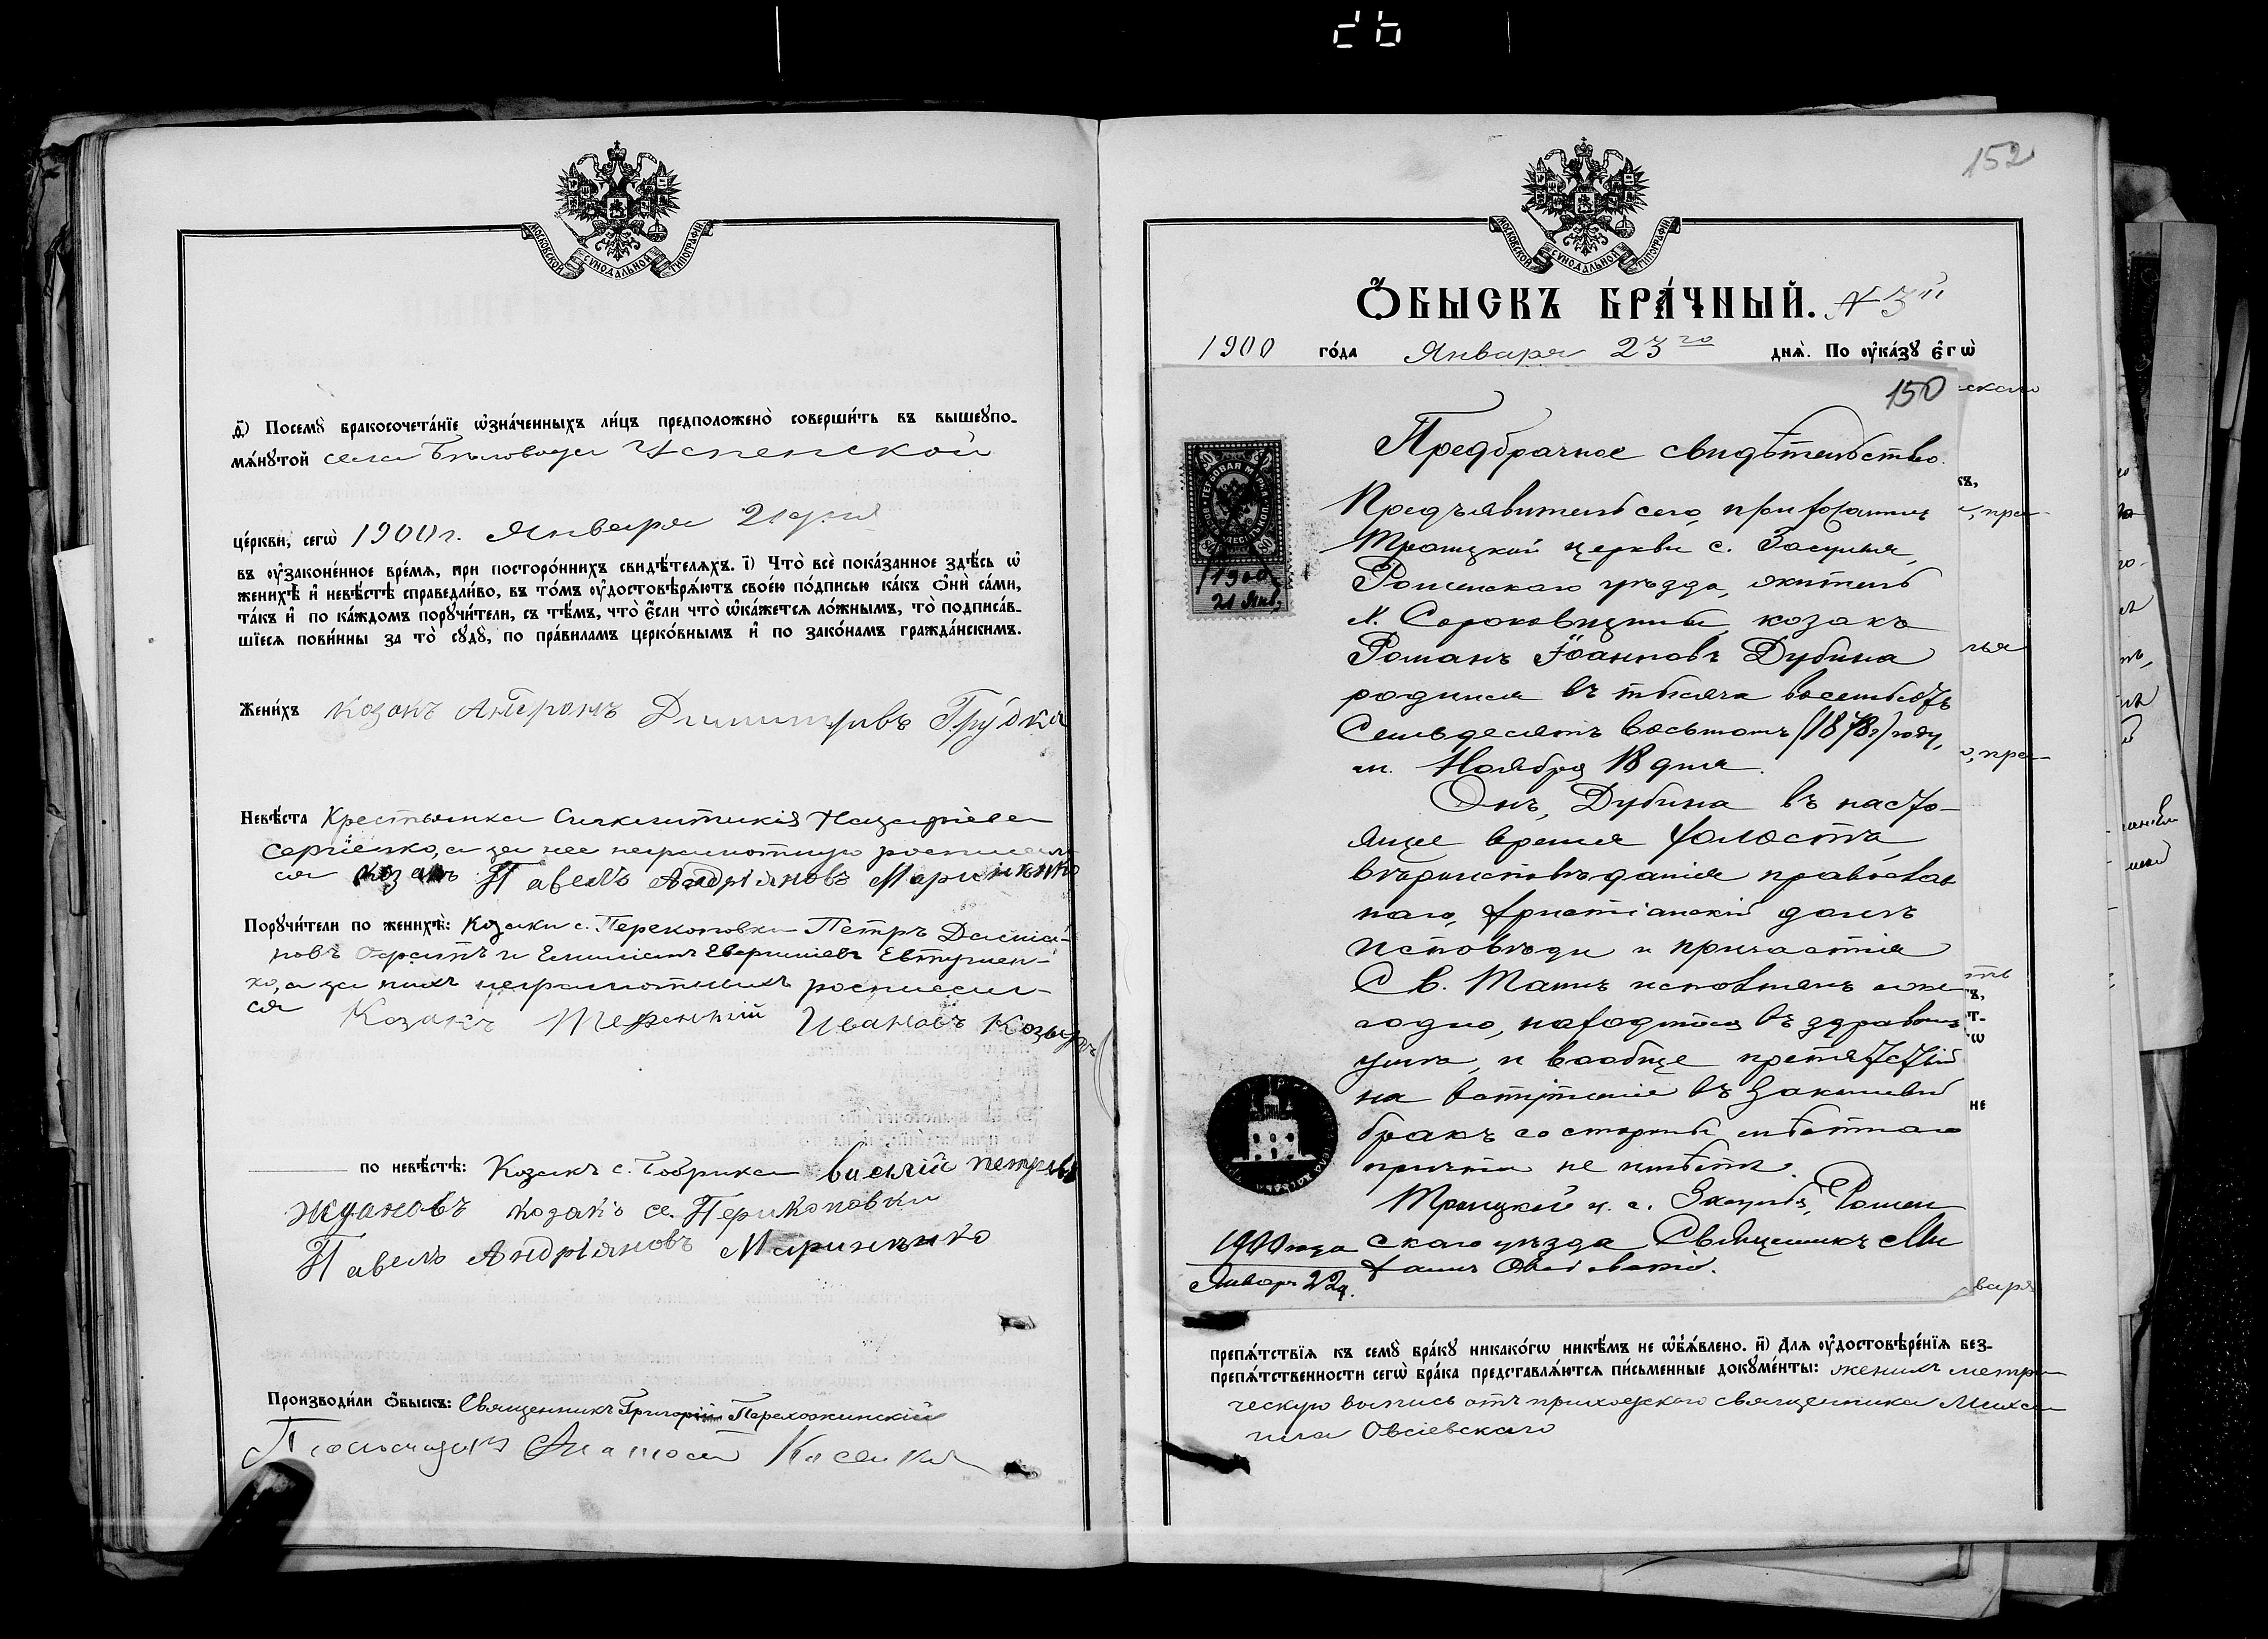 МОСКОВСКОЙ СѴНОДАЛЬНОЙ ТИПОГРАФІИ
д҃і) Посемꙋ̀ бракосочета́нїе ѡ҆зна́ченныхъ ли́цъ предположено̀ соверши́ть въ вышеꙋпо-
мѧ́нꙋтой села Бѣловода Успенской
це́ркви, сегѡ̀ 1900 г. Января 21 дня
въ оу҆законе́нное вре́мѧ, при посторо́ннихъ свидѣ́телѧхъ. і҃) Что̀ всѐ пока́занное здѣ́сь ѡ҆
женихѣ̀ и҆ невѣ́стѣ справедли́во, въ то́мъ оу҆достовѣрѧ́ютъ свое́ю по́дписью ка́къ ѻ҆нѝ са́ми,
та́къ и҆ по ка́ждомъ порꙋчи́тели, съ тѣ́мъ, что̀ є҆́сли что̀ ѡ҆ка́жетсѧ ло́жнымъ, то̀ подписа́в-
шїесѧ пови́нны за то̀ сꙋдꙋ̀, по пра́виламъ церко́внымъ и҆ по зако́намъ гражда́нскимъ.
Жени́хъ Козакъ Димитривъ Грудка
Невѣ́ста Крестьянка Синклитикія Назаріева
Сергіенко, а за нее неграмотную росписал
ся козакъ Павелъ Андріяновъ Мариненко
Порꙋчи́тели по женихѣ̀: Козаки с. Перекоповки Петръ Даміа-
новъ и Емиліанъ Евтушен-
ко, а за нихъ неграмотныхъ росписал-
ся Козакъ Терентій Ивановъ Козыръ
по невѣ́стѣ: Козакъ с. Бобрика василій петровъ
ждановъ козакъ се. Перикоповки
Павелъ Андріяновъ Мариненко
Производи́ли ѻ҆́быскъ: Священникъ Григорій
Псаломщикъ
152
МОСКОВСКОЙ СѴНОДАЛЬНОЙ ТИПОГРАФІИ
Ѻ҆́БЫСКЪ БРА́ЧНЫЙ. № 3й
1900 го́да Января 23го днѧ̀. По оу҆ка́зꙋ є҆гѡ̀
150
Предбрачное свидѣтельство.
Предъявитель сего, прихожанинъ
Троицкой церкви с. Засулья,
Роменскаго уѣзда, житель
х. Сороковщины, козакъ
Романъ Іоанновъ Дубина
родился въ тысяча восемьсотъ
Семьдесятъ восьмомъ (1878г) году,
м. Ноября 18 дня.
Онъ, Дубина въ насто-
ящее время холостъ,
вѣроисповѣданія православ
наго, христіанскій долгъ
исповѣди и причастія
Св. Таинъ исполняетъ еже
годно, находится въ здравомъ
умѣ, и вообще препятствій
на вступленіе въ законный
бракъ со стороны мѣстнаго
причта не имѣетъ.
Троицкой ц. с. Засулья, Ромен
скаго уѣзда Священникъ Ми
хаилъ Овсіевскій.
1900 года
Января 22 д.
ГЕРБОВАЯ МАРКА
80
1900
21 Янв.
препѧ́тствїѧ къ семꙋ̀ бра́кꙋ никако́гѡ никѣ́мъ не ѡ҆б̾ѧ́влено. и҃) Длѧ оу҆достовѣре́нїѧ без-
препѧ́тственности сегѡ̀ бра́ка представлѧ́ютсѧ пи́сьменные докꙋме́нты: женихъ метри
ческую выпись отъ приходскаго священника Миха
ила Овсіевскаго